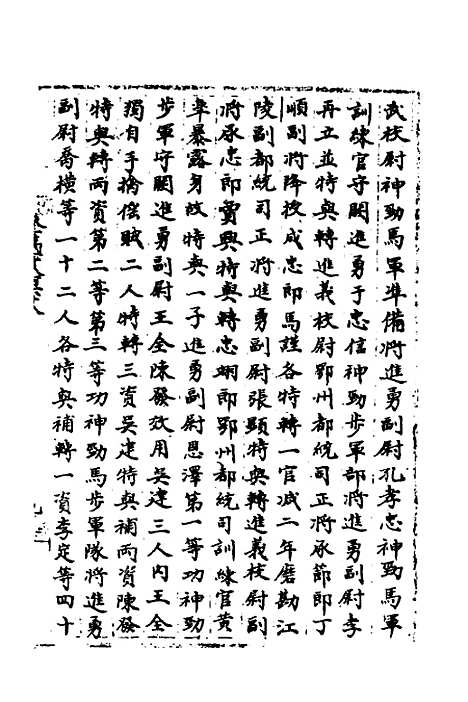 武校尉神勁馬軍准備將進勇副尉孔孝忠神勁馬軍
訓練官守闕進勇于忠信神勁步軍部將進勇副尉李
再立並特與轉進義校尉鄂州都統司正將承節郎丁
順副將降授成忠郎馬謹各特轉一官減二年磨勘江
陵副都統司正將進勇副尉張顯特與轉進義校尉副
將承忠郎賞興特與轉忠翊郎鄂州都統司訓練官黄
準暴露身故特與一子進勇副尉恩澤第一等功神勁
步軍守闕進勇副尉王全陳發效用吴建三人内王全
獨自手擒僞賊二人特轉三資吴建特與補兩資陳發
特與轉兩資第二等第三等功神勁馬步軍隊將進勇
副尉喬横等一十二人各特與補轉一資李定等四十